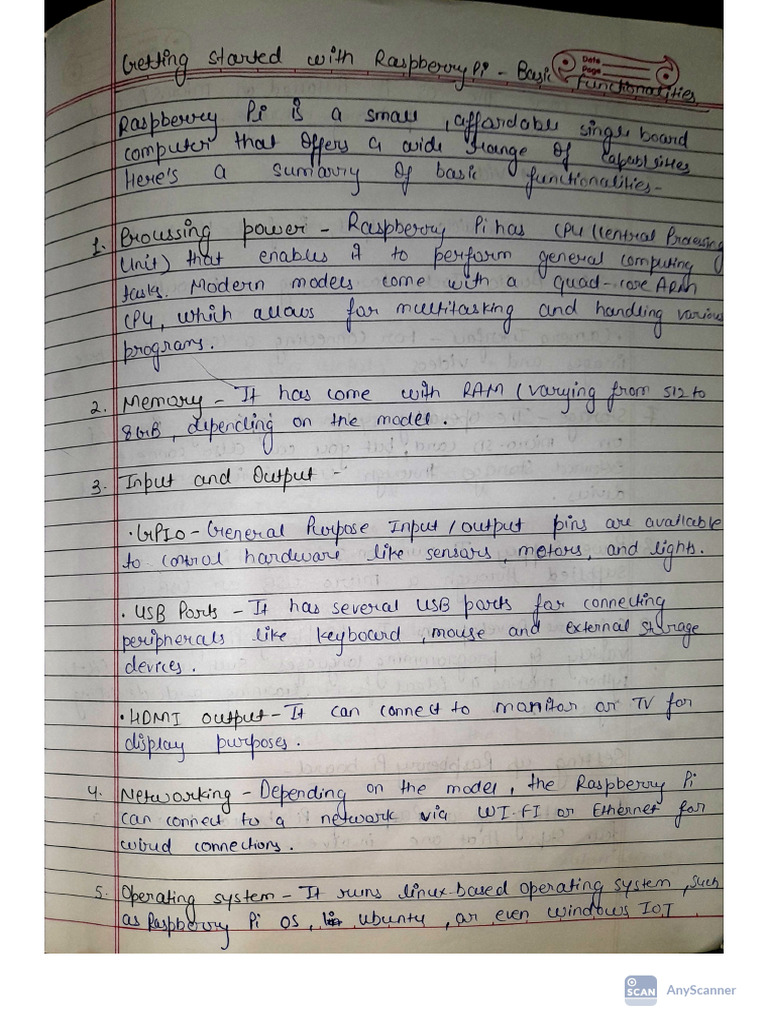 Getting started with Raspberry Pi - Basic
Date
Page
Functionalities
Raspberry Pi is a small , affordable single board
computer that offers a wide range of capablsities
Here's a summary of basic functionalities -
1. Proussing power - Raspberry Pi has CPU (Central Processing
Unit) that enables it to perform general computing
tasks. Modern models come with a quad-core ARM
CPU, which allows for multitasking and handling various
programs.
2. Memory - It has come with RAM (varying from 512 to
8GB, depending on the model.
3. Input and Output -
• GPIO - General Purpose Input / output pins are available
to control hardware like sensars, motors and lights.
• USB Ports - It has several USB ports for connecting
peripherals like keyboard , mouse and external storage
devices.
• HDMI output - It can connect to manitor or TV for
display purposes.
4. Networking - Depending on the model, the Raspberry Pi
can connect to a network via WI-FI or Ethernet for
wired connections.
5. Operating system - It runs linux-based operating system, such
as Raspberry Pi OS, ubuntu, or even windows IOT
SCAN AnyScanner